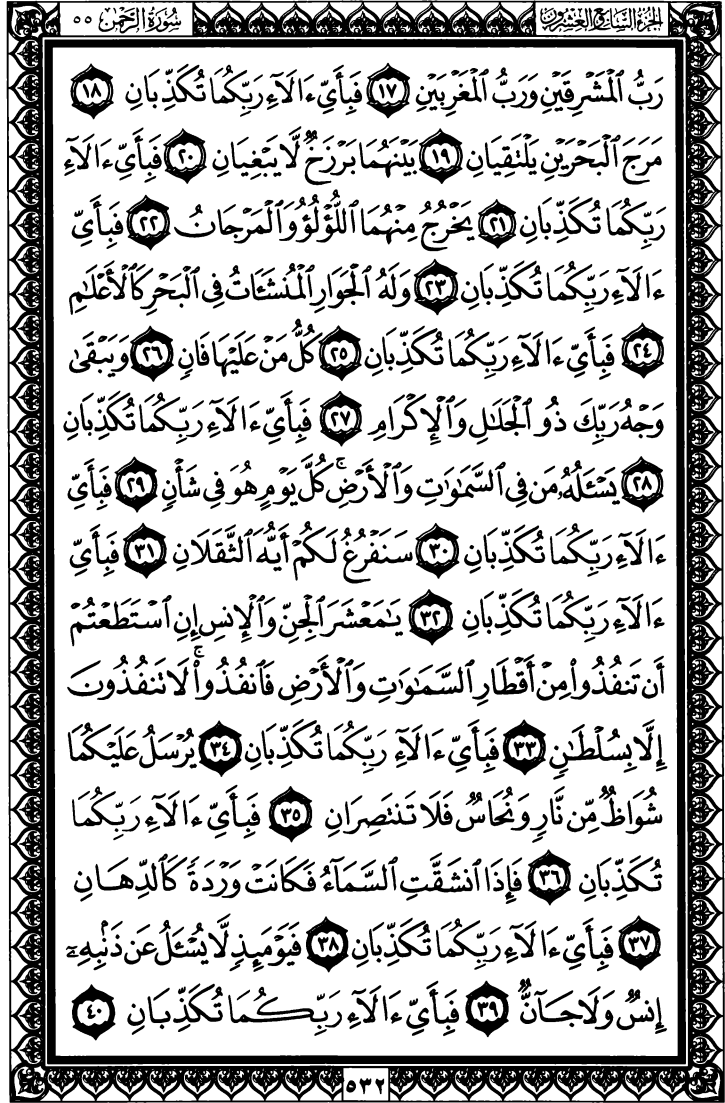 سُورَةُ الرَّحْمَٰن ٥٥
الجُزءُ السَّابِعُ العِشْرُون
رَبُّ ٱلْمَشْرِقَيْنِ وَرَبُّ ٱلْمَغْرِبَيْنِ ١٧ فَبِأَىِّ ءَالَآءِ رَبِّكُمَا تُكَذِّبَانِ ١٨
مَرَجَ ٱلْبَحْرَيْنِ يَلْتَقِيَانِ ١٩ بَيْنَهُمَا بَرْزَخٌ لَّا يَبْغِيَانِ ٢٠ فَبِأَىِّ ءَالَآءِ
رَبِّكُمَا تُكَذِّبَانِ ٢١ يَخْرُجُ مِنْهُمَا ٱللُّؤْلُؤُ وَٱلْمَرْجَانُ ٢٢ فَبِأَىِّ
ءَالَآءِ رَبِّكُمَا تُكَذِّبَانِ ٢٣ وَلَهُ ٱلْجَوَارِ ٱلْمُنشَـَٔاتُ فِى ٱلْبَحْرِ كَٱلْأَعْلَٰمِ
٢٤ فَبِأَىِّ ءَالَآءِ رَبِّكُمَا تُكَذِّبَانِ ٢٥ كُلُّ مَنْ عَلَيْهَا فَانٍ ٢٦ وَيَبْقَىٰ
وَجْهُ رَبِّكَ ذُو ٱلْجَلَٰلِ وَٱلْإِكْرَامِ ٢٧ فَبِأَىِّ ءَالَآءِ رَبِّكُمَا تُكَذِّبَانِ
٢٨ يَسْـَٔلُهُۥ مَن فِى ٱلسَّمَٰوَٰتِ وَٱلْأَرْضِ ۚ كُلَّ يَوْمٍ هُوَ فِى شَأْنٍ ٢٩ فَبِأَىِّ
ءَالَآءِ رَبِّكُمَا تُكَذِّبَانِ ٣٠ سَنَفْرُغُ لَكُمْ أَيُّهَ ٱلثَّقَلَانِ ٣١ فَبِأَىِّ
ءَالَآءِ رَبِّكُمَا تُكَذِّبَانِ ٣٢ يَٰمَعْشَرَ ٱلْجِنِّ وَٱلْإِنسِ إِنِ ٱسْتَطَعْتُمْ
أَن تَنفُذُوا۟ مِنْ أَقْطَارِ ٱلسَّمَٰوَٰتِ وَٱلْأَرْضِ فَٱنفُذُوا۟ ۚ لَا تَنفُذُونَ
إِلَّا بِسُلْطَٰنٍ ٣٣ فَبِأَىِّ ءَالَآءِ رَبِّكُمَا تُكَذِّبَانِ ٣٤ يُرْسَلُ عَلَيْكُمَا
شُوَاظٌ مِّن نَّارٍ وَنُحَاسٌ فَلَا تَنتَصِرَانِ ٣٥ فَبِأَىِّ ءَالَآءِ رَبِّكُمَا
تُكَذِّبَانِ ٣٦ فَإِذَا ٱنشَقَّتِ ٱلسَّمَآءُ فَكَانَتْ وَرْدَةً كَٱلدِّهَانِ
٣٧ فَبِأَىِّ ءَالَآءِ رَبِّكُمَا تُكَذِّبَانِ ٣٨ فَيَوْمَئِذٍ لَّا يُسْـَٔلُ عَن ذَنۢبِهِۦٓ
إِنسٌ وَلَا جَآنٌّ ٣٩ فَبِأَىِّ ءَالَآءِ رَبِّكُمَا تُكَذِّبَانِ ٤٠
٥٣٢